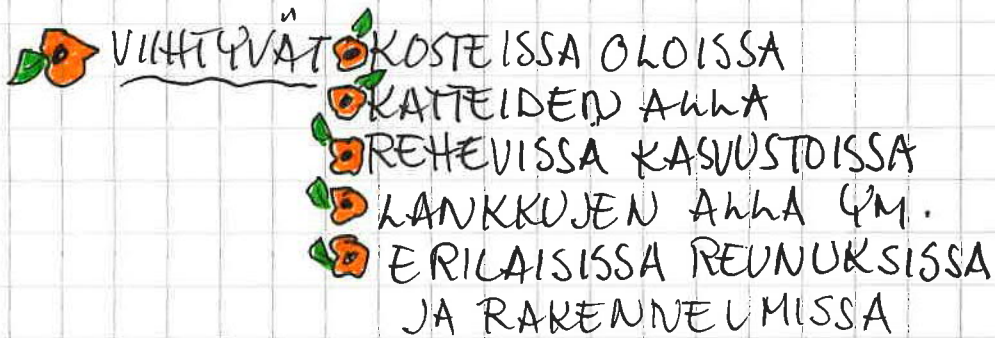 VIIHTYVÄT KOSTEISSA OLOISSA
KATTEIDEN ALLA
REHEVISSÄ KASVUSTOISSA
LANKKUJEN ALLA YM.
ERILAISISSA REUNUKSISSA
JA RAKENNELMISSA